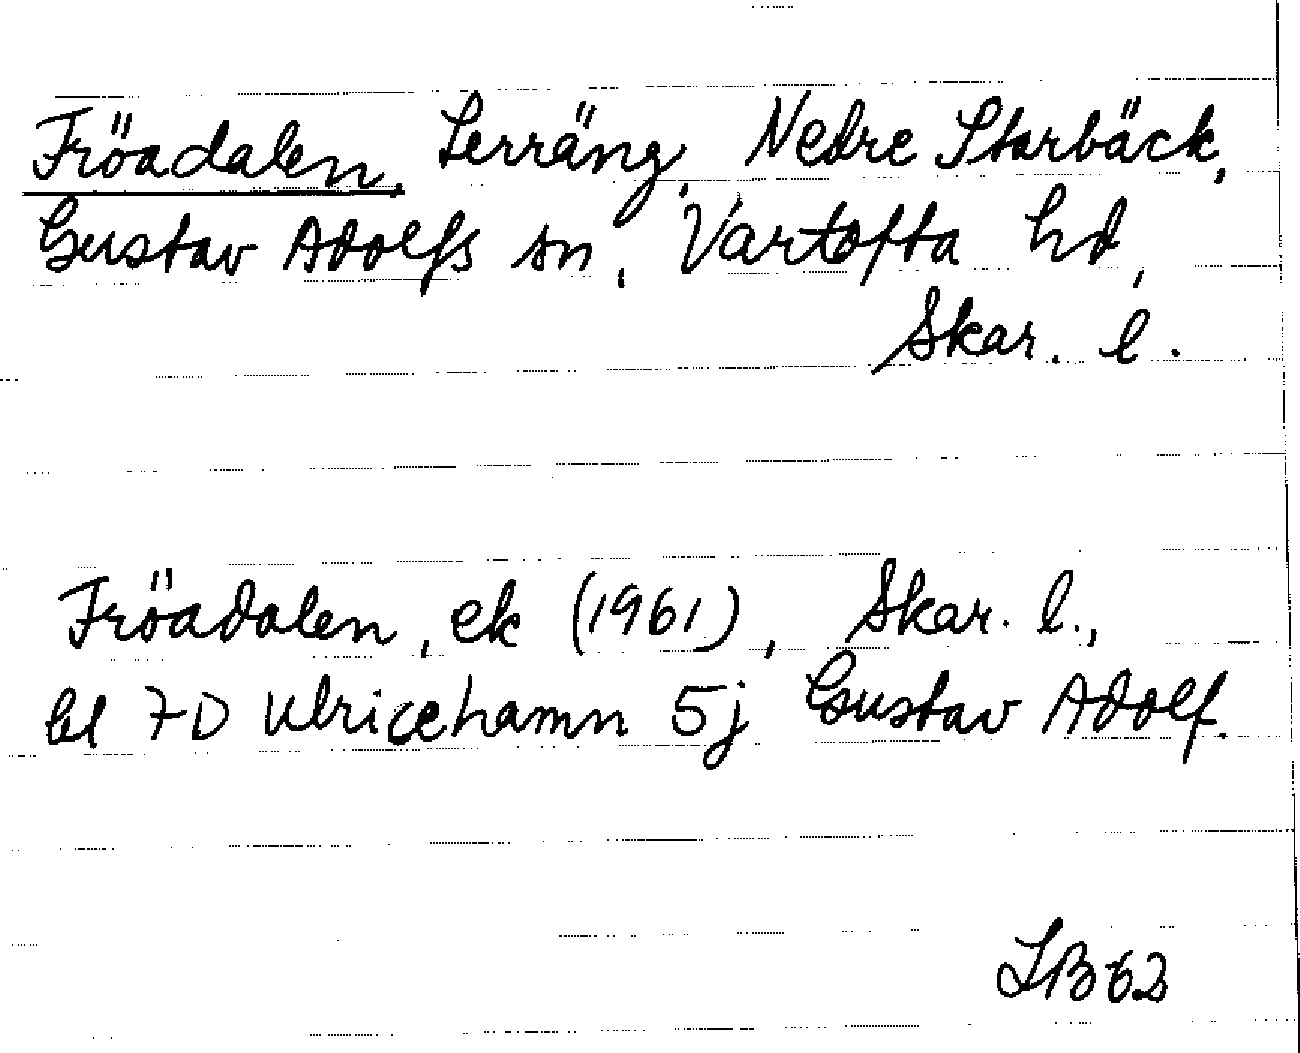 Fröadalen, Terräng, Nedre Starbäck,
Gustav Adolfs sn, Vartofta hd,
Skar. l.
Fröadalen, ek (1961), Skar. l.,
bl 7D Ulricehamn 5j Gustav Adolf.
LB 62